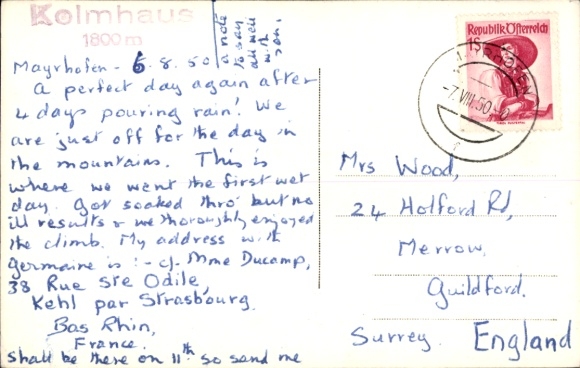 Kolmhaus
1800 m
Mayrhofen - 6.8.50
A perfect day again after
4 days pouring rain! We
are just off for the day in
the mountains. This is
where we went the first wet
day. Got soaked thro' but no
ill results & we thoroughly enjoyed
the climb. My address with
Germaine is :- c/o. Mme Ducamp,
38 Rue Ste Odile,
Kehl par Strasbourg.
Bas Rhin,
France.
Shall be there on 11th so send me
a note
to say
all well
with
you.
Republik Österreich
1S
-7.VIII.50
Mrs Wood,
24 Holford Rd,
Merrow.
Guildford.
Surrey. England